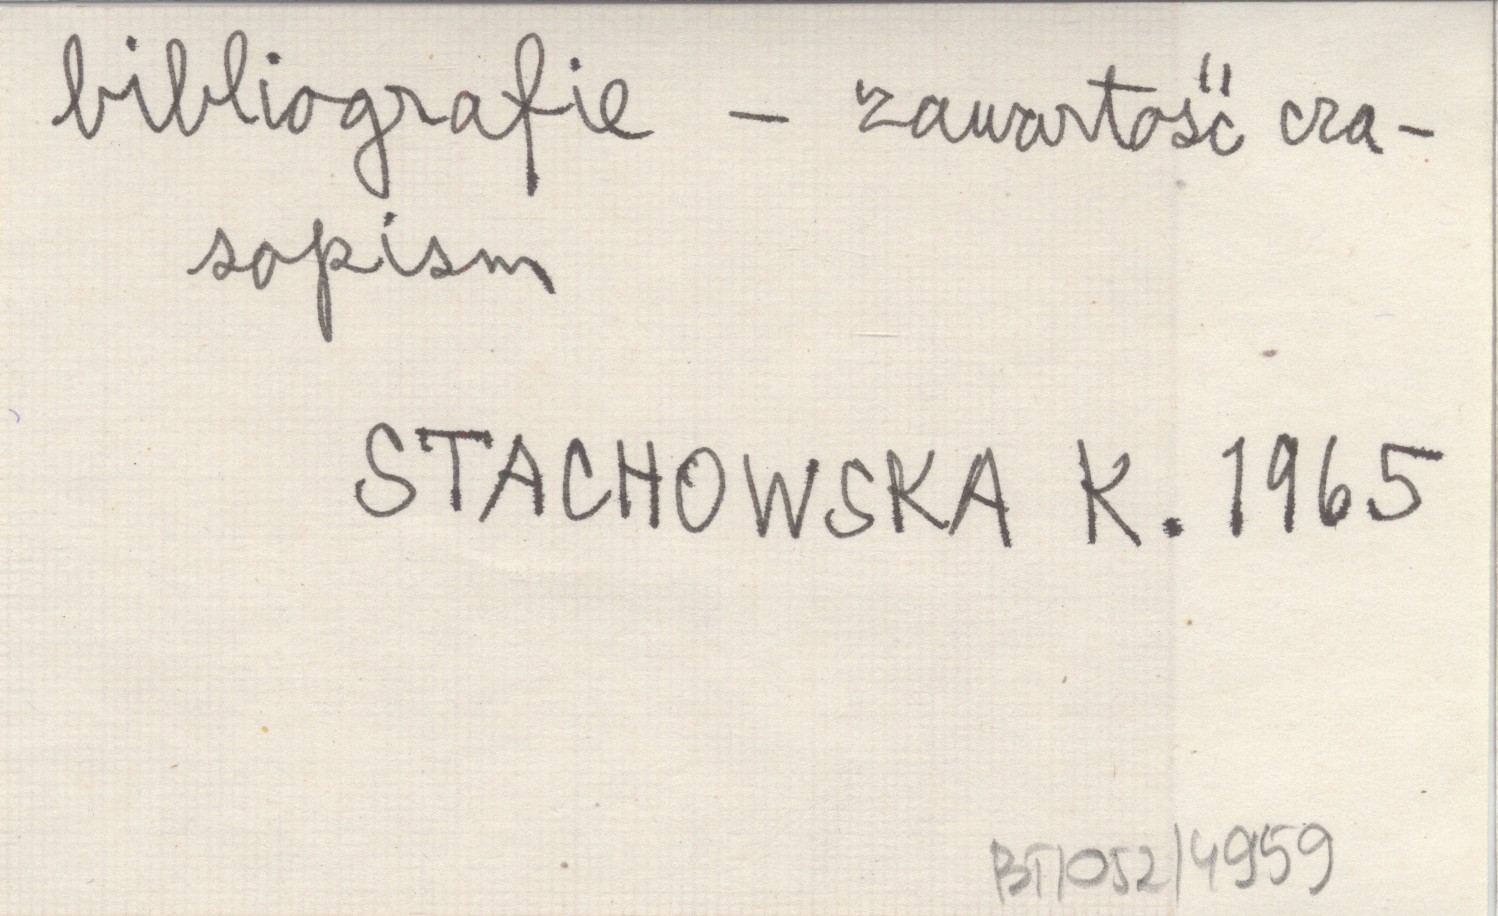 bibliografie – zawartość cza-
sopism
STACHOWSKA K. 1965
BT/052/4959